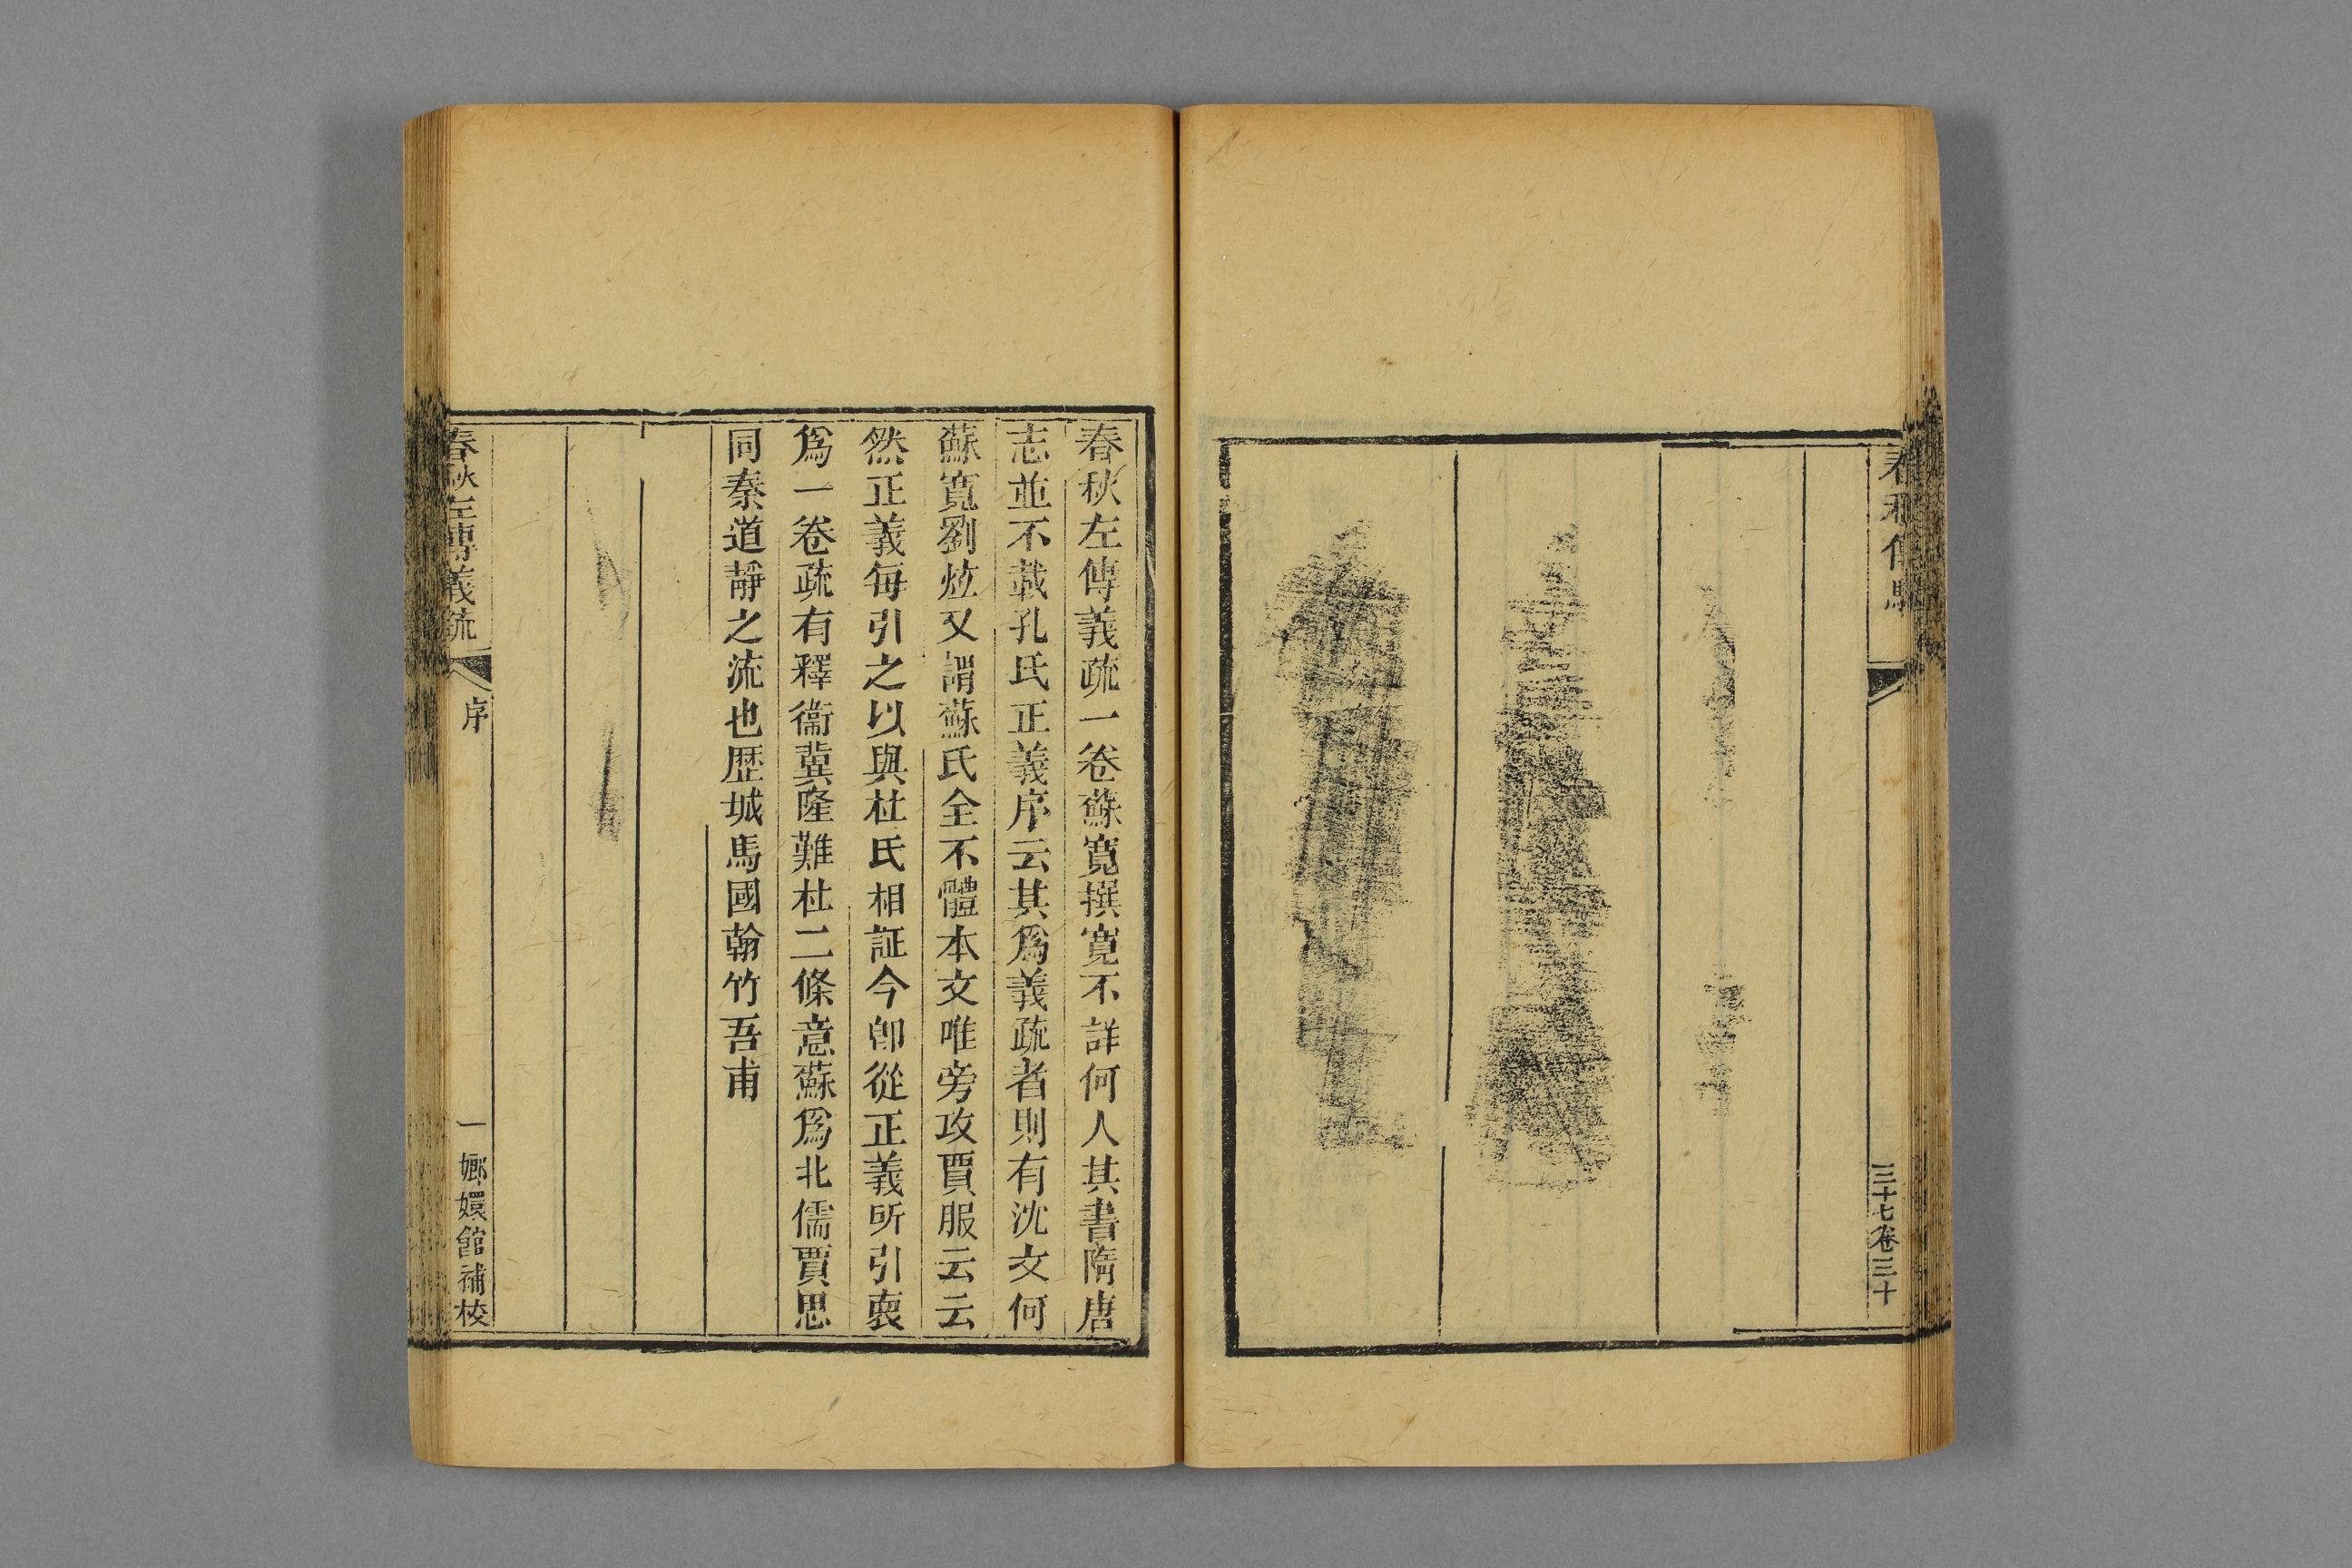 三十七卷三十
春秋左傳義疏一卷蘇寬撰寬不詳何人其書隋唐
志並不載孔氏正義序云其爲義疏者則有沈文何
蘇寬劉炫又謂蘇氏全不體本文唯旁攻賈服云云
然正義每引之以與杜氏相証今卽從正義所引裒
爲一卷疏有釋衞冀隆難杜二條意蘇爲北儒賈思
同秦道靜之流也歷城馬國翰竹吾甫
春秋左傳義疏 序 一 嫏嬛館補校